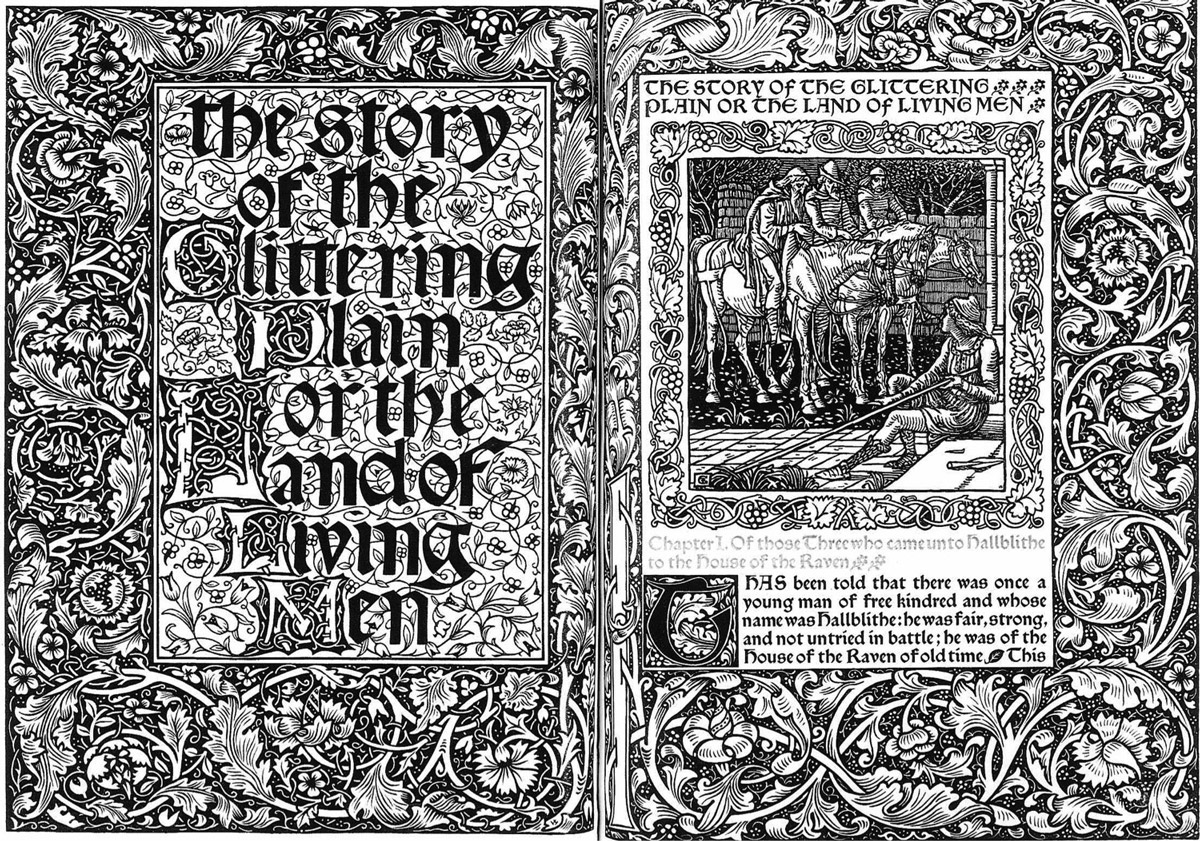 the story
of the
Glittering
Plain
or the
Land of
Living
Men
THE STORY OF THE GLITTERING
PLAIN OR THE LAND OF LIVING MEN
Chapter I. Of those Three who came unto Hallblithe
to the House of the Raven
T HAS been told that there was once a
young man of free kindred and whose
name was Hallblithe: he was fair, strong,
and not untried in battle; he was of the
House of the Raven of old time. This